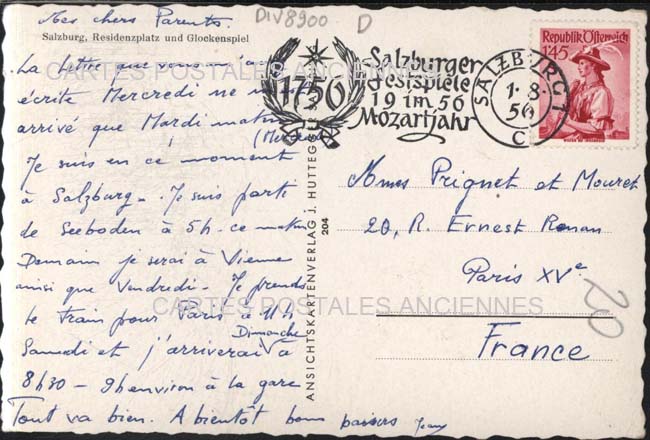 Mes chers Parents.
DIV8900 D
Salzburg, Residenzplatz und Glockenspiel
La lettre que vous m'a
écrite Mercredi ne m'
arrivé que Mardi matin
Je suis en ce moment
à Salzburg. Je suis parti
de Seeboden à 5h. ce matin
Demain je serai à Vienne
ainsi que Vendredi. Je prends
le train pour Paris à 11h
Dimanche
Samedi et j'arriverai à
8h30 - 9h environ à la gare
Tout va bien. A bientôt bons baisers
1756
Salzburger
Festspiele
19 im 56
Mozartjahr
SALZBURG 1
1.8.
56
C
Republik Österreich
1'45
ANSICHTSKARTENVERLAG J. HUTTEGGER
204
Mmes Prignet et Mouret
20, R. Ernest Renan
Paris XVe
France
20
CARTES POSTALES ANCIENNES
CARTES POSTALES ANCIENNES